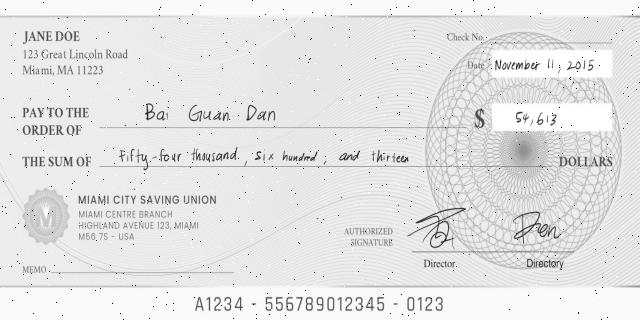 JANE DOE
123 Great Lincoln Road
Miami, MA 11223
Check No.
Date November 11, 2015
PAY TO THE ORDER OF Bai Guan Dan
$ 54,613
THE SUM OF Fifty-four thousand, six hundred, and thirteen DOLLARS
MIAMI CITY SAVING UNION
MIAMI CENTRE BRANCH
HIGHLAND AVENUE 123, MIAMI
M56,7S - USA
AUTHORIZED SIGNATURE
Director.
Directory
MEMO
A1234 - 556789012345 - 0123